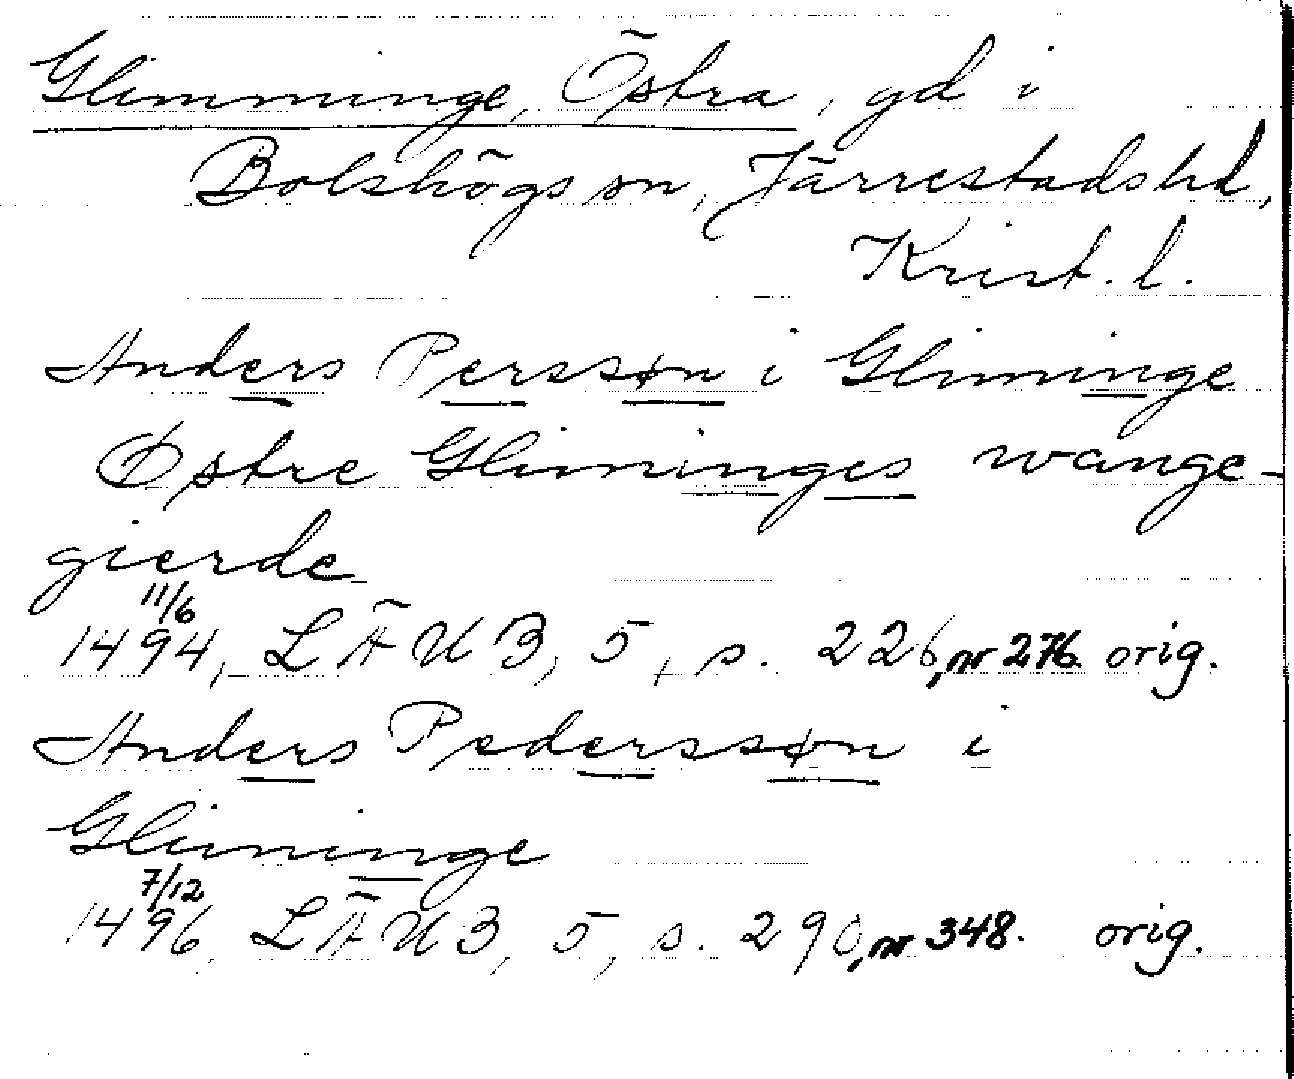 Glimminge, Östra, gd i
Bolshögs sn, Järrestads hd,
Krist. l.
Anders Perssøn i Gliminge
Østre Gliminges wange-
gierde
11/6
1494, LÄUB, 5, s. 226, nr 276. orig.
Anders Pederssøn i
Gliminge
7/12
1496, LÄUB, 5, s. 290, nr 348. orig.